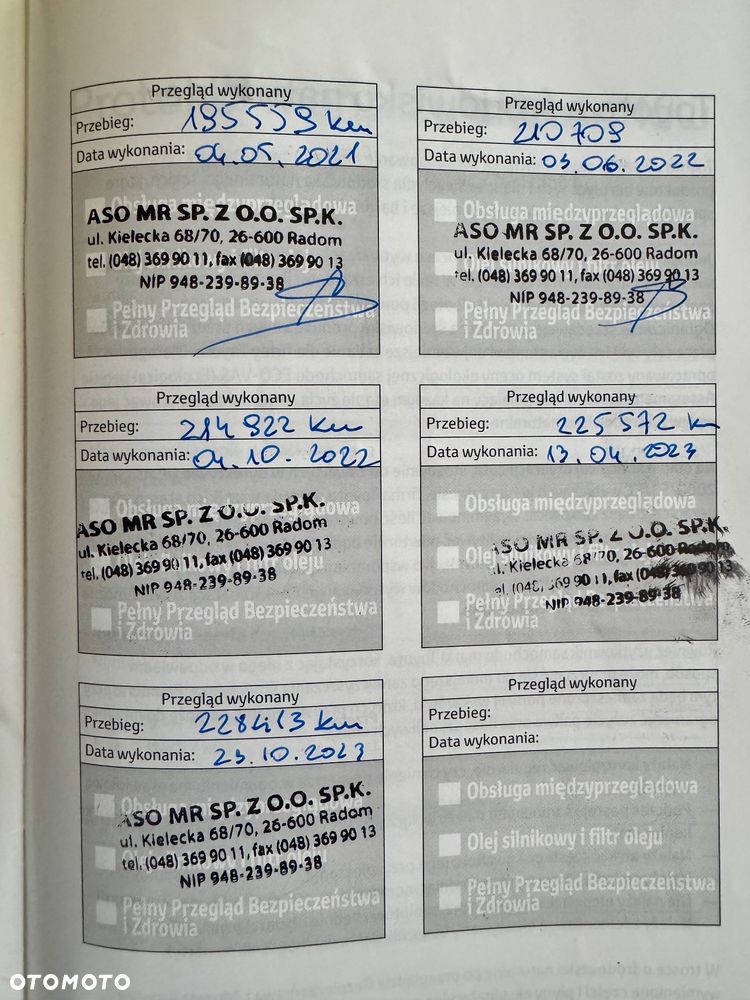 Przegląd wykonany
Przebieg: 195559 km
Data wykonania: 04.05.2021
Obsługa międzyprzeglądowa
ASO MR SP. Z O.O. SP.K.
ul. Kielecka 68/70, 26-600 Radom
tel. (048) 369 90 11, fax (048) 369 90 13
NIP 948-239-89-38
Pełny Przegląd Bezpieczeństwa
i Zdrowia
Przegląd wykonany
Przebieg: 210709
Data wykonania: 03.06.2022
Obsługa międzyprzeglądowa
ASO MR SP. Z O.O. SP.K.
ul. Kielecka 68/70, 26-600 Radom
Olej silnikowy i filtr oleju
tel. (048) 369 90 11, fax (048) 369 90 13
NIP 948-239-89-38
Pełny Przegląd Bezpieczeństwa
i Zdrowia
Przegląd wykonany
Przebieg: 214922 km
Data wykonania: 04.10.2022
Obsługa międzyprzeglądowa
ASO MR SP. Z O.O. SP.K.
ul. Kielecka 68/70, 26-600 Radom
tel. (048) 369 90 11, fax (048) 369 90 13
i filtr oleju
NIP 948-239-89-38
Pełny Przegląd Bezpieczeństwa
i Zdrowia
Przegląd wykonany
Przebieg: 225572 km
Data wykonania: 13.04.2023
Obsługa międzyprzeglądowa
ASO MR SP. Z O.O. SP.K.
Olej silnikowy i filtr
ul. Kielecka 68/70, 26-600 Radom
tel. (048) 369 90 11, fax (048) 369 90 13
NIP 948-239-89-38
Pełny Przegląd Bezpieczeństwa
i Zdrowia
Przegląd wykonany
Przebieg: 228413 km
Data wykonania: 23.10.2023
Obsługa międzyprzeglądowa
ASO MR SP. Z O.O. SP.K.
ul. Kielecka 68/70, 26-600 Radom
tel. (048) 369 90 11, fax (048) 369 90 13
NIP 948-239-89-38
Pełny Przegląd Bezpieczeństwa
i Zdrowia
Przegląd wykonany
Przebieg:
Data wykonania:
Obsługa międzyprzeglądowa
Olej silnikowy i filtr oleju
Pełny Przegląd Bezpieczeństwa
i Zdrowia
OTOMOTO